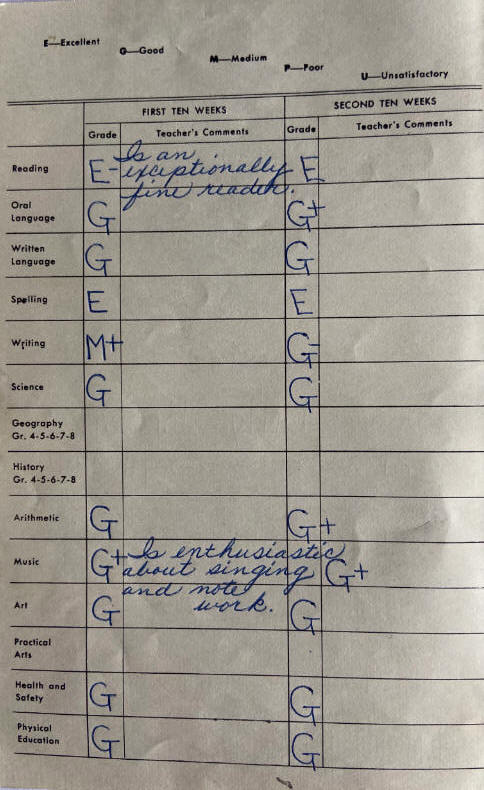 E—Excellent
G—Good
M—Medium
P—Poor
U—Unsatisfactory
FIRST TEN WEEKS SECOND TEN WEEKS
Grade Teacher's Comments Grade Teacher's Comments
Reading E- Is an exceptionally fine reader. E
Oral Language G G+
Written Language G G
Spelling E E
Writing M+ G-
Science G G
Geography Gr. 4-5-6-7-8
History Gr. 4-5-6-7-8
Arithmetic G G+
Music G+ Is enthusiastic about singing and note work. G+
Art G G
Practical Arts
Health and Safety G G
Physical Education G G